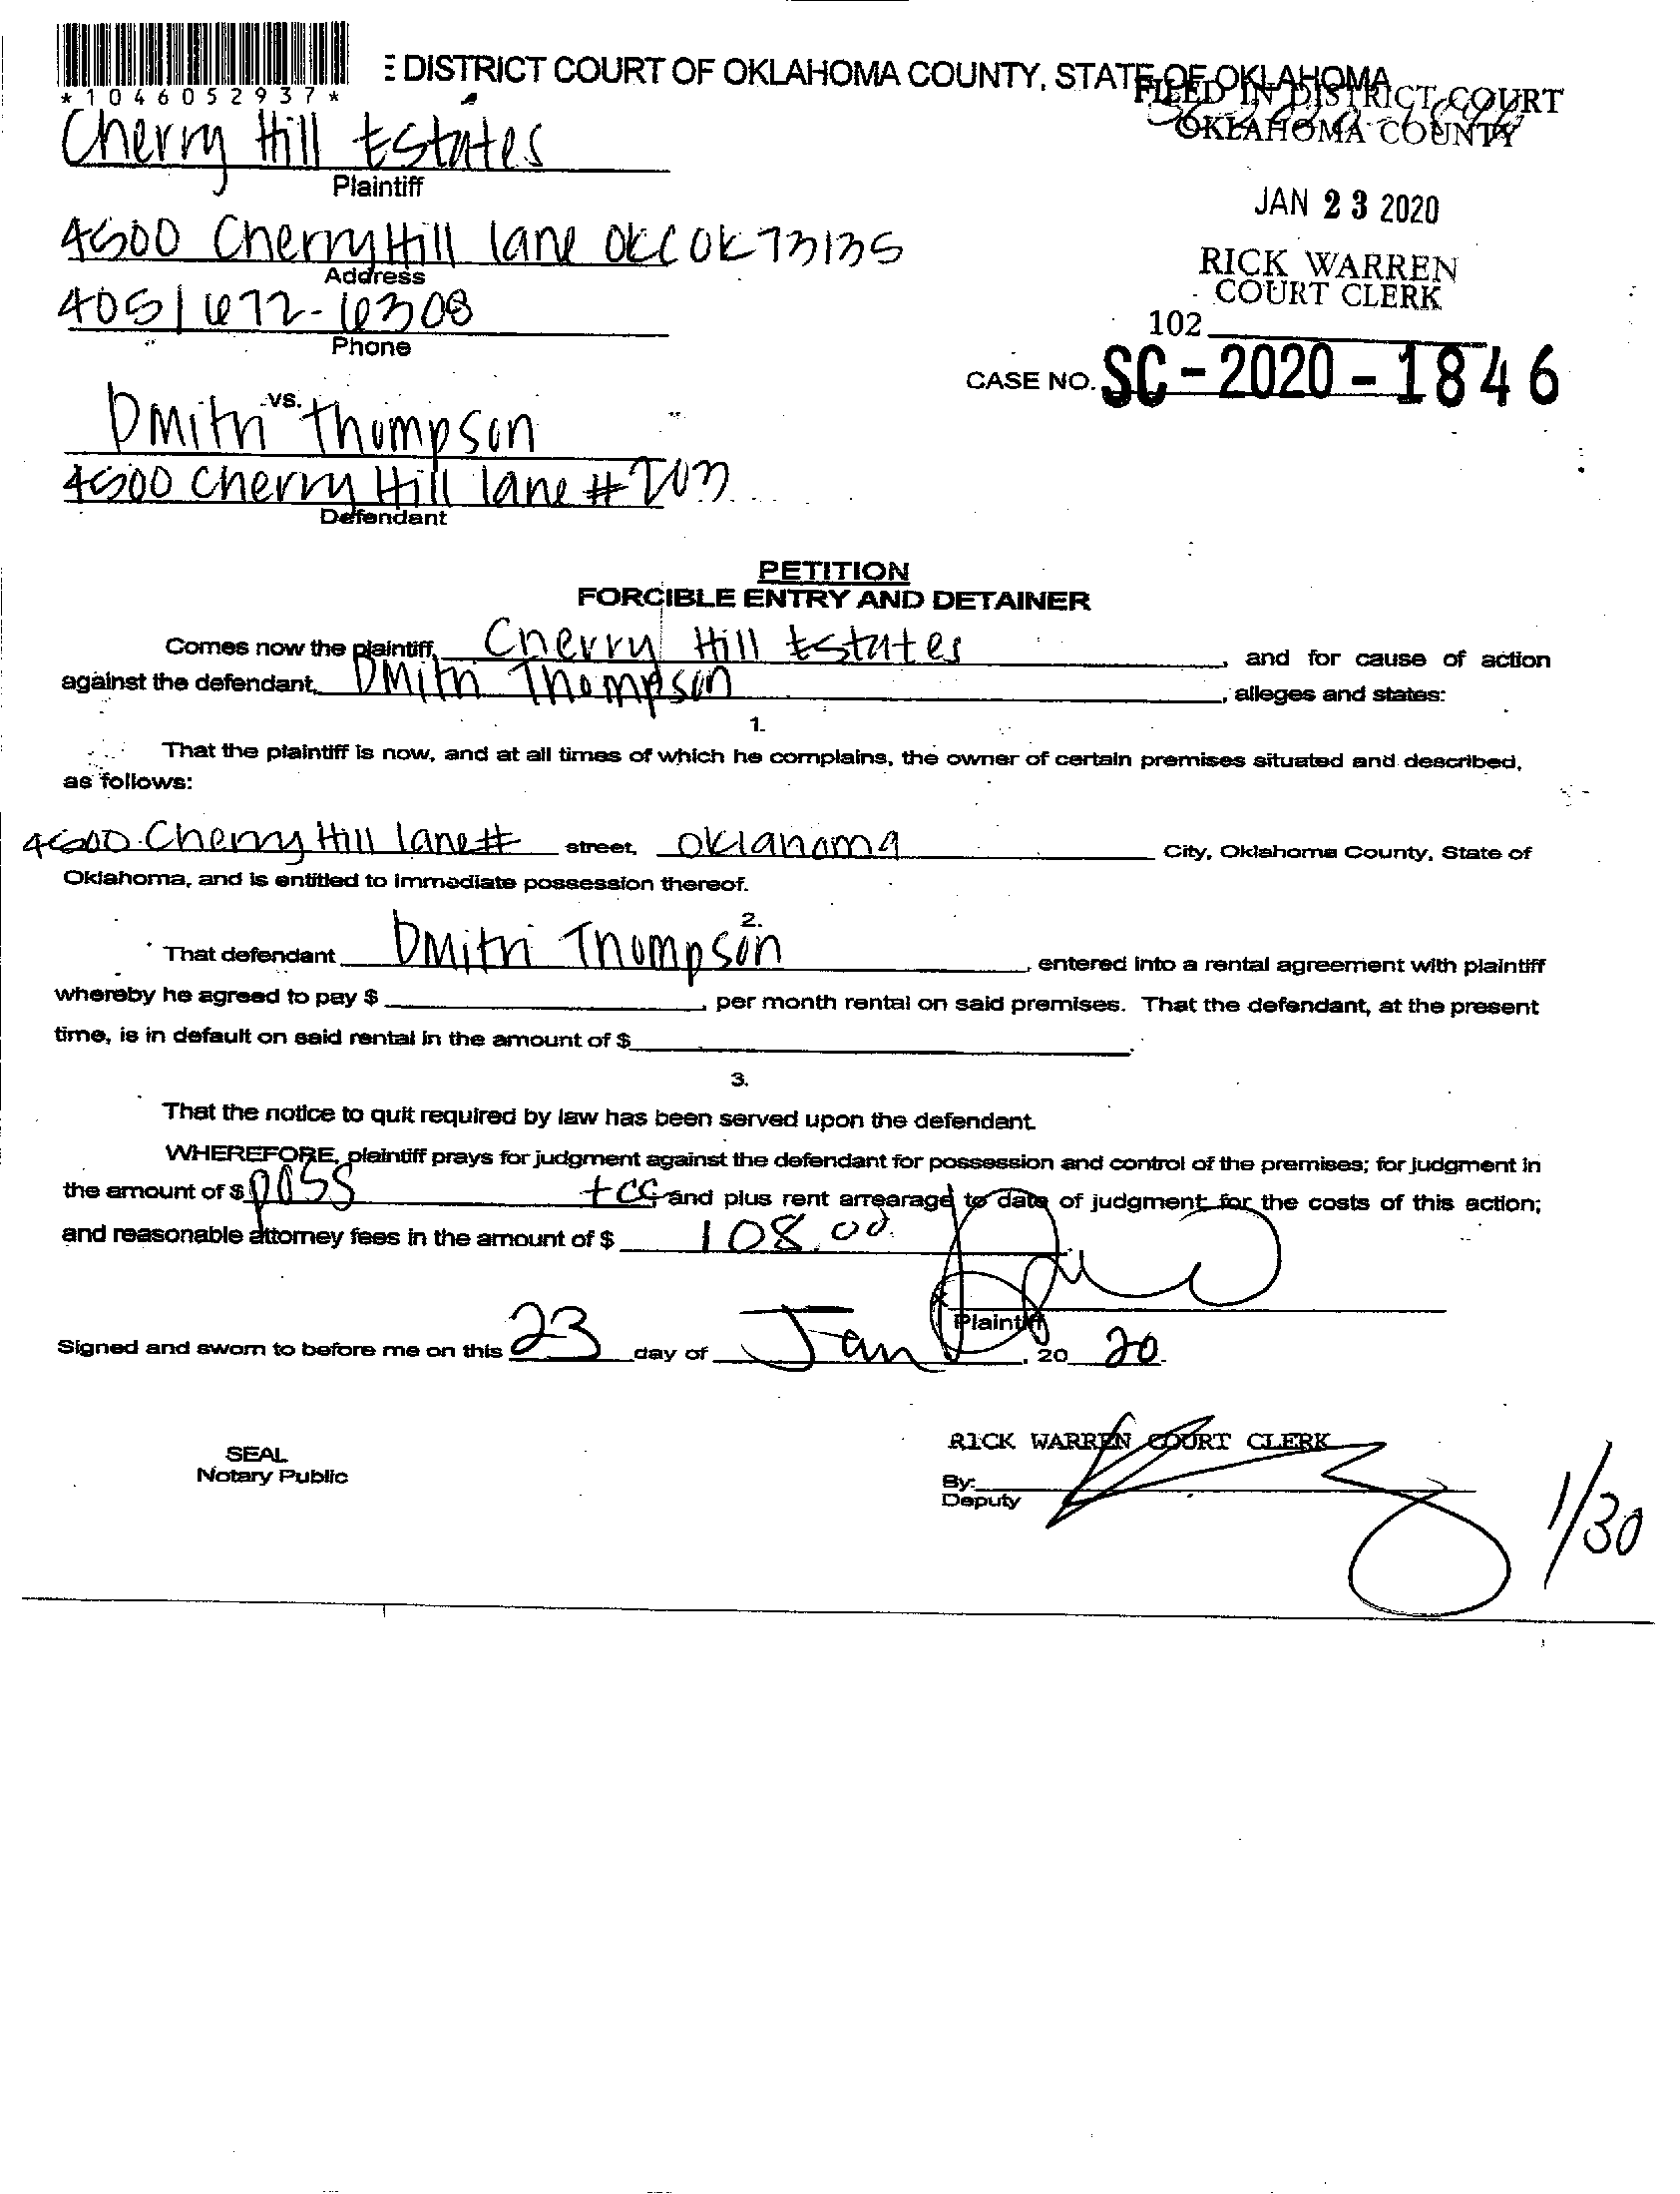 *1046052937*
E DISTRICT COURT OF OKLAHOMA COUNTY, STATE OF OKLAHOMA
FILED IN DISTRICT COURT
OKLAHOMA COUNTY
Cherry Hill Estates
Plaintiff
JAN 23 2020
4500 Cherry Hill lane OKC OK 73135
Address
RICK WARREN
COURT CLERK
405/672-6308
Phone
102
CASE NO. SC-2020-1846
vs.
Dmitri Thompson
4500 Cherry Hill lane # 203
Defendant
PETITION
FORCIBLE ENTRY AND DETAINER
Comes now the plaintiff, Cherry Hill Estates, and for cause of action
against the defendant, Dmitri Thompson, alleges and states:
1.
That the plaintiff is now, and at all times of which he complains, the owner of certain premises situated and described,
as follows:
4500 Cherry Hill lane # street, Oklahoma City, Oklahoma County, State of
Oklahoma, and is entitled to immediate possession thereof.
2.
That defendant Dmitri Thompson, entered into a rental agreement with plaintiff
whereby he agreed to pay $ , per month rental on said premises. That the defendant, at the present
time, is in default on said rental in the amount of $ .
3.
That the notice to quit required by law has been served upon the defendant.
WHEREFORE, plaintiff prays for judgment against the defendant for possession and control of the premises; for judgment in
the amount of $ poss +CC and plus rent arrearage to date of judgment for the costs of this action;
and reasonable attorney fees in the amount of $ 108.00
Plaintiff
Signed and sworn to before me on this 23 day of Jan, 20 20.
SEAL
Notary Public
RICK WARREN COURT CLERK
By:
Deputy
1/30